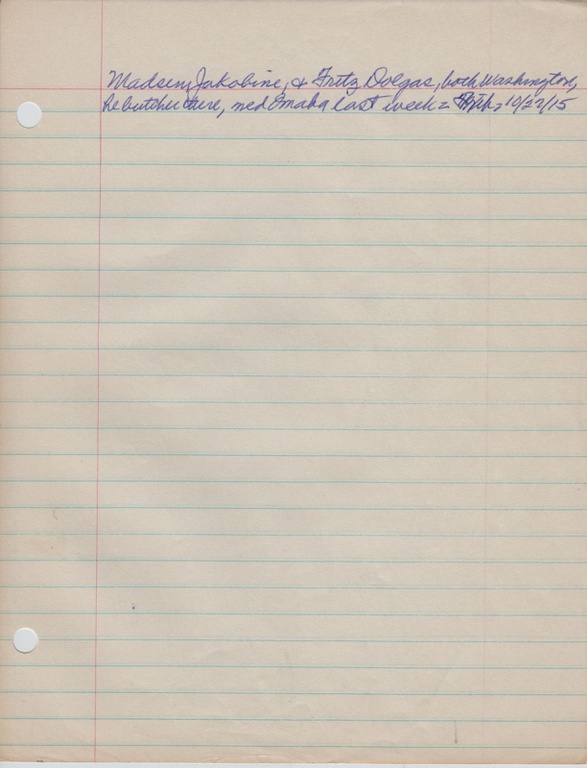 Madsen, Jakobine, & Fritz Dolgas, both Washington,
he butcher there, md Omaha last week = 10/22/15